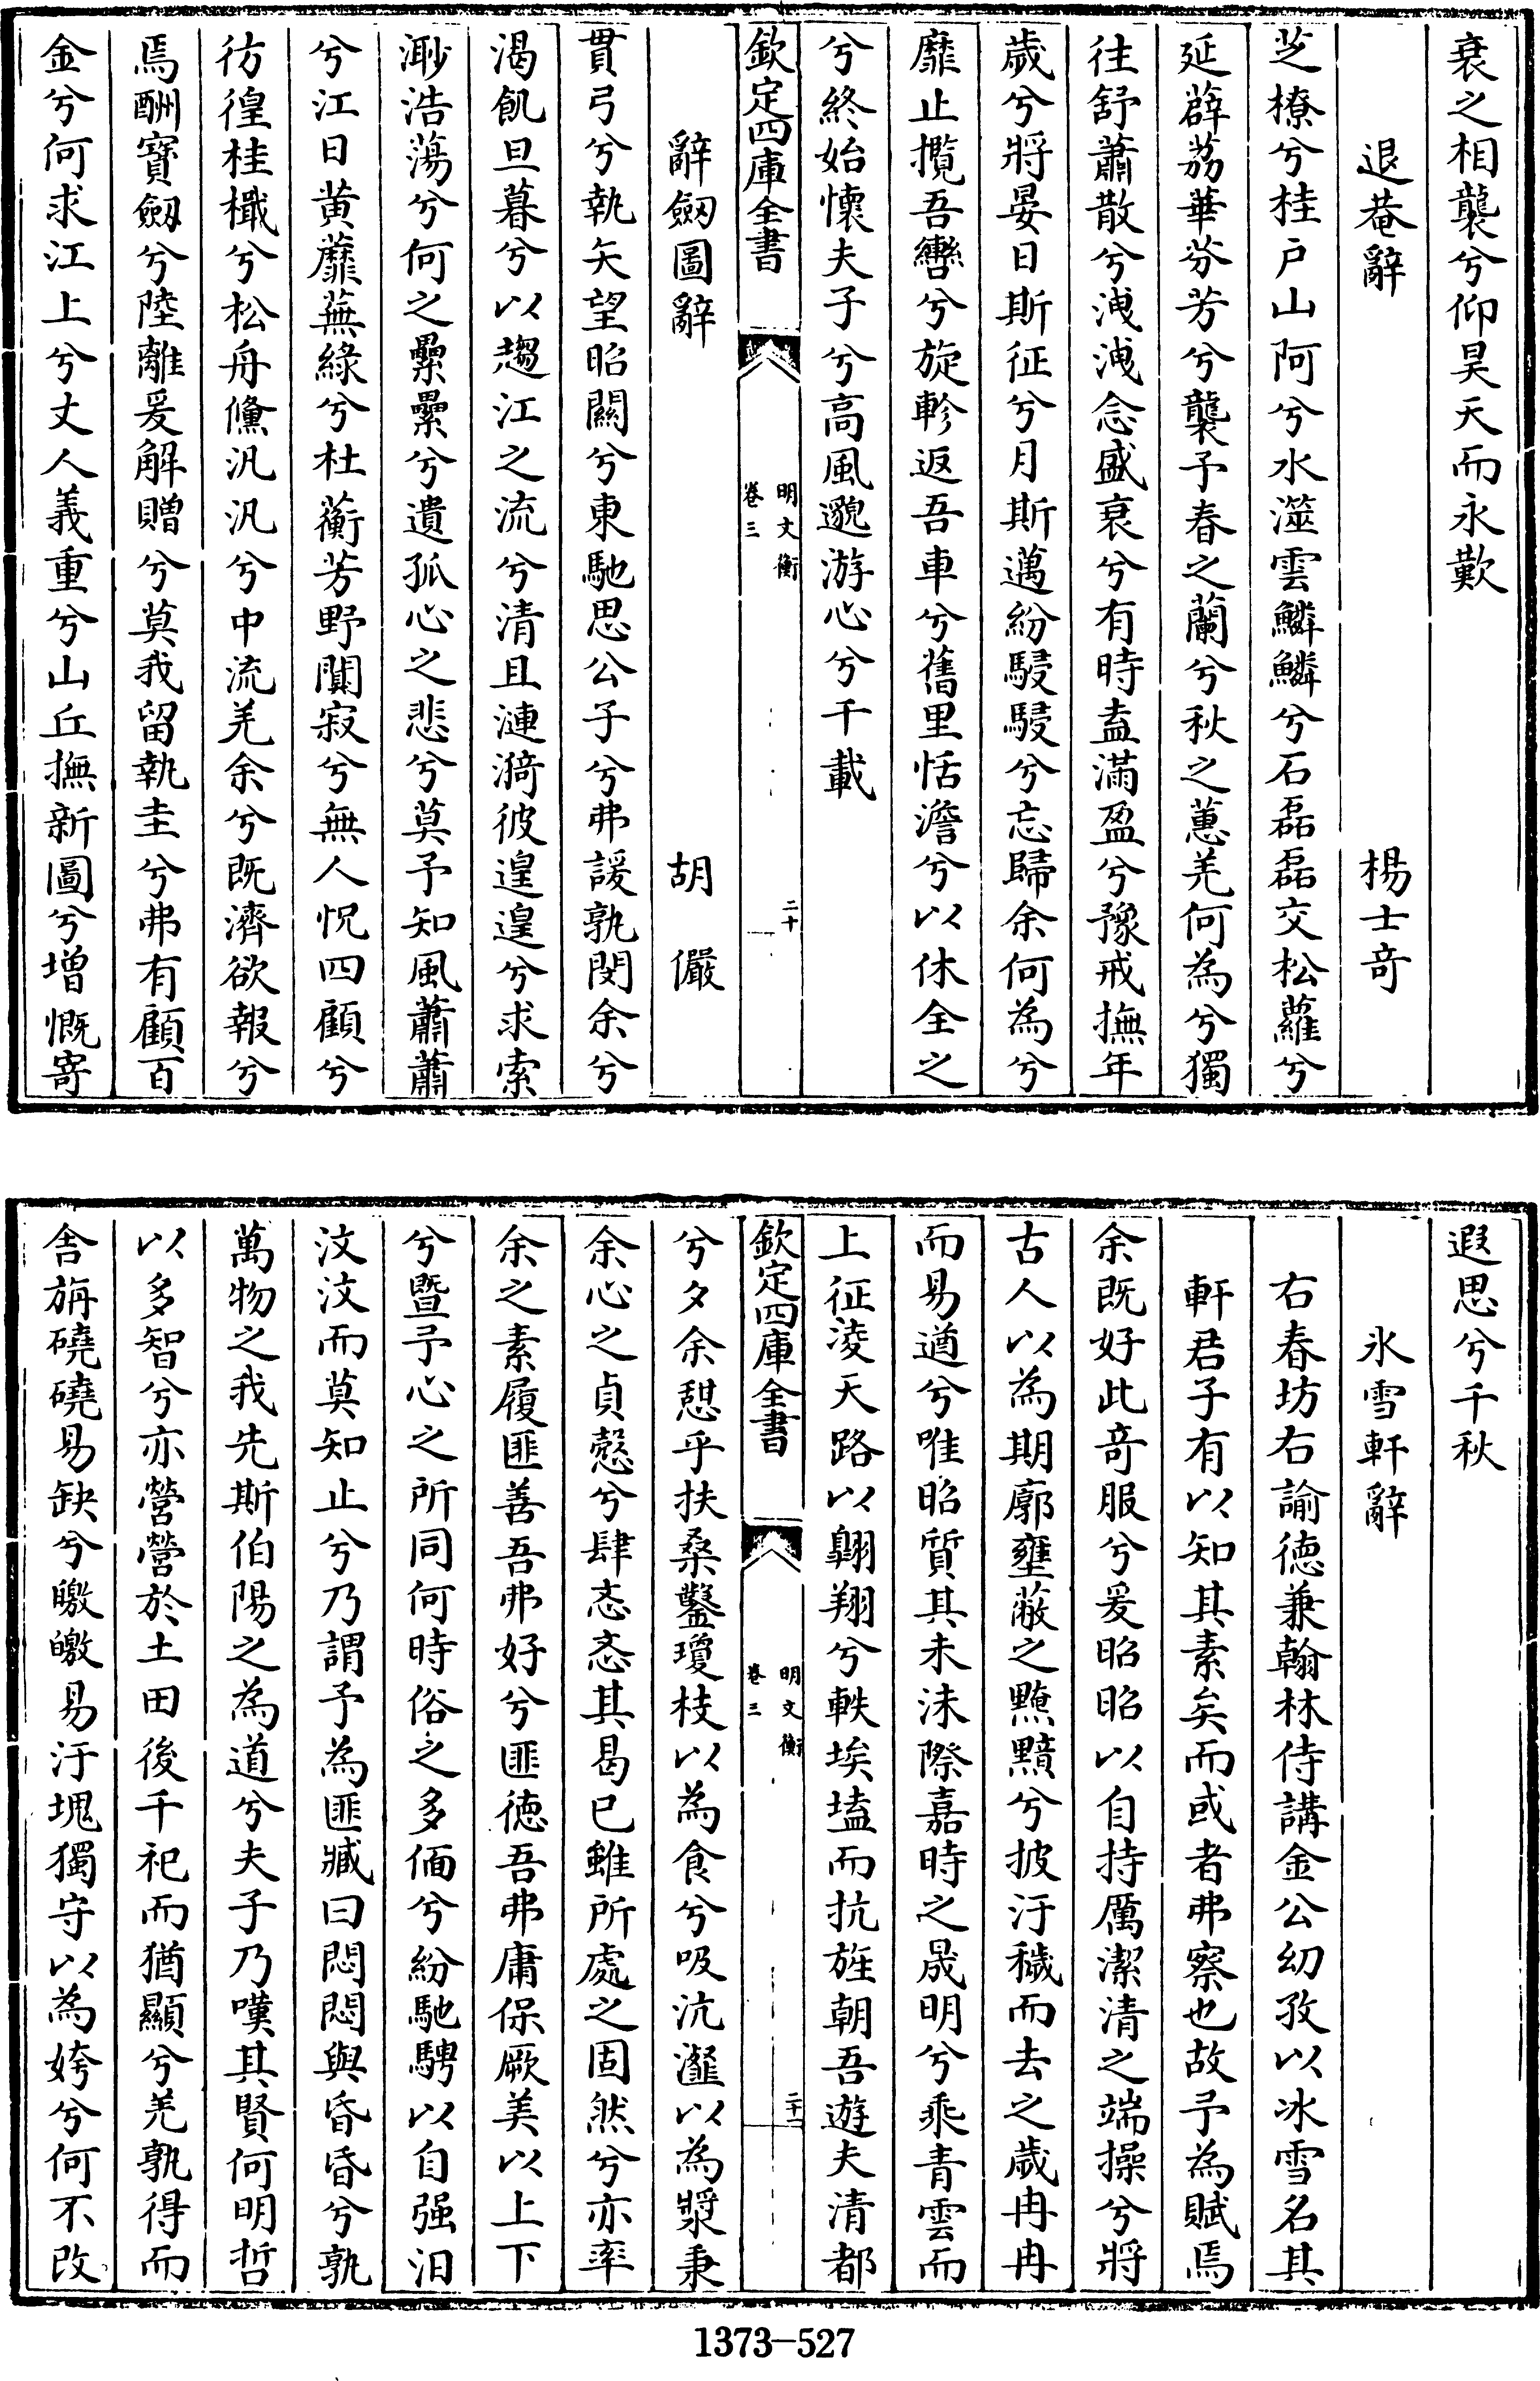 衰之相襲兮仰昊天而永歎
退菴辭 楊士奇
芝橑兮桂户山阿兮水澨雲鱗鱗兮石磊磊交松蘿兮
延薜荔華芬芳兮襲予春之蘭兮秋之蕙羌何為兮獨
往舒蕭散兮洩洩念盛衰兮有時盍滿盈兮豫戒撫年
歲兮將晏日斯征兮月斯邁紛駸駸兮忘歸余何為兮
靡止攬吾轡兮旋軫返吾車兮舊里恬澹兮以休全之
兮終始懷夫子兮高風邈游心兮千載
欽定四庫全書 明文衡 卷三 二十
辭劔圖辭 胡儼
貫弓兮執矢望昭關兮東馳思公子兮弗諼孰閔余兮
渴飢旦暮兮以趨江之流兮清且漣漪彼遑遑兮求索
渺浩蕩兮何之纍纍兮遺孤心之悲兮莫予知風蕭蕭
兮江日黄蘼蕪緑兮杜蘅芳野闃寂兮無人怳四顧兮
彷徨桂檝兮松舟儵汎汎兮中流羌余兮既濟欲報兮
焉酬寶劔兮陸離爰解贈兮莫我留執圭兮弗有顧百
金兮何求江上兮丈人義重兮山丘撫新圖兮增慨寄
遐思兮千秋
氷雪軒辭
右春坊右諭徳兼翰林侍講金公幼孜以冰雪名其
軒君子有以知其素矣而或者弗察也故予為賦焉
余既好此奇服兮爰昭昭以自持厲潔清之端操兮將
古人以為期廓壅蔽之黭黯兮披汙穢而去之歲冉冉
而易遒兮唯昭質其未沬際嘉時之晟明兮乘青雲而
上征淩天路以翺翔兮軼埃壒而抗旌朝吾遊夫清都
欽定四庫全書 明文衡 卷三 二十一
兮夕余憇乎扶桑鑿瓊枝以為食兮吸沆瀣以為漿秉
余心之貞慤兮肆忞忞其曷已雖所處之固然兮亦率
余之素履匪善吾弗好兮匪徳吾弗庸保厥美以上下
兮暨予心之所同何時俗之多偭兮紛馳騁以自强汨
汶汶而莫知止兮乃謂予為匪臧曰悶悶與昏昏兮孰
萬物之我先斯伯陽之為道兮夫子乃嘆其賢何明哲
以多智兮亦營營於土田後千祀而猶顯兮羌孰得而
舍旃磽磽易缺兮皦皦易汙塊獨守以為姱兮何不改
1373-527